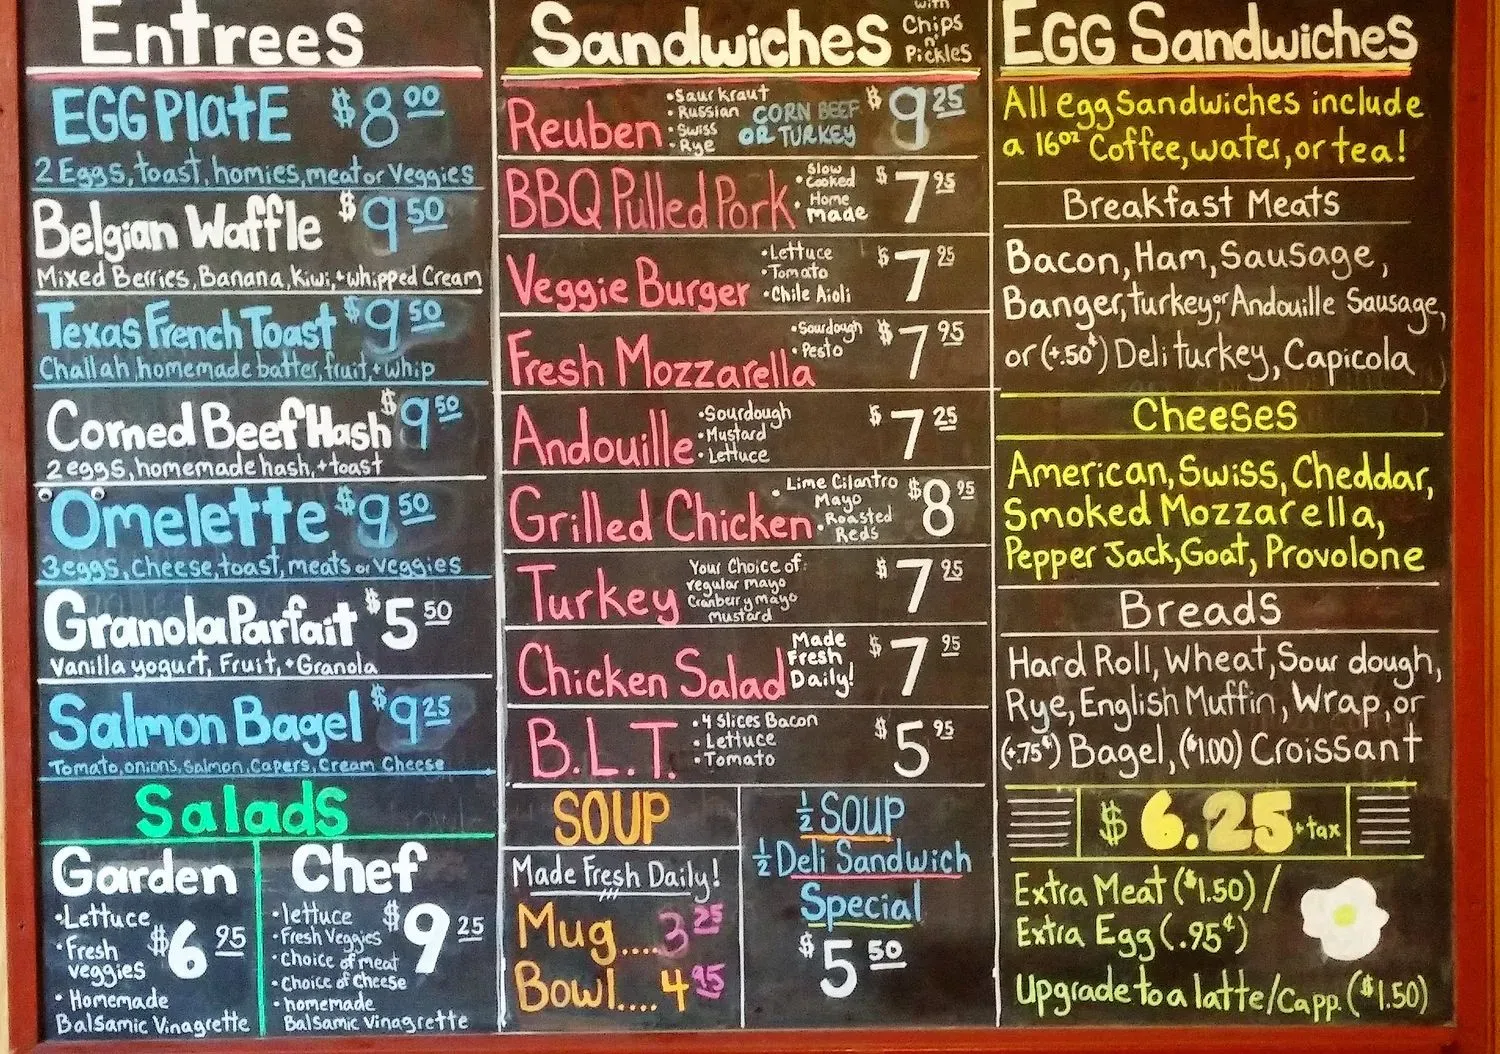 Entrees
EGG PlatE $8.00
2 Eggs, toast, homies, meat or Veggies
Belgian Waffle $9.50
Mixed Berries, Banana, Kiwi, + whipped Cream
Texas French Toast $9.50
Challah, homemade batter, fruit, + whip
Corned Beef Hash $9.50
2 eggs, homemade hash, + toast
Omelette $9.50
3 eggs, Cheese, toast, meats or veggies
Granola Parfait $5.50
Vanilla yogurt, Fruit, + Granola
Salmon Bagel $9.25
Tomato, onions, Salmon, Capers, Cream Cheese
Salads
Garden
•Lettuce
•Fresh
veggies
$6.95
• Homemade
Balsamic Vinagrette
Chef
•lettuce
•Fresh Veggies
•choice of meat
•Choice of Cheese
$9.25
•homemade
Balsamic Vinagrette
Sandwiches
with
Chips
n'
Pickles
Reuben
•Saurkraut
•Russian
•Swiss
•Rye
CORN BEEF
OR TURKEY
$9.25
BBQ Pulled Pork
•Slow
Cooked
•Home
made
$7.95
Veggie Burger
•Lettuce
•Tomato
•Chile Aioli
$7.25
Fresh Mozzarella
•Sourdough
•Pesto
$7.95
Andouille
•Sourdough
•Mustard
•Lettuce
$7.25
Grilled Chicken
• Lime Cilantro
Mayo
•Roasted
Reds
$8.95
Turkey
Your Choice of:
regular mayo
Cranberry mayo
mustard
$7.25
Chicken Salad
Made
Fresh
Daily!
$7.95
B.L.T.
•4 Slices Bacon
•Lettuce
•Tomato
$5.95
SOUP
Made Fresh Daily!
Mug....3.25
Bowl....4.95
½ SOUP
½ Deli Sandwich
Special
$5.50
EGG Sandwiches
All egg Sandwiches include
a 16oz Coffee, water, or tea!
Breakfast Meats
Bacon, Ham, Sausage,
Banger, turkey, or Andouille Sausage,
or (+.50¢) Deli turkey, Capicola
Cheeses
American, Swiss, Cheddar,
Smoked Mozzarella,
Pepper Jack, Goat, Provolone
Breads
Hard Roll, Wheat, Sour dough,
Rye, English Muffin, Wrap, or
(+.75¢) Bagel, ($1.00) Croissant
$6.25 + tax
Extra Meat ($1.50) /
Extra Egg (.95¢)
Upgrade to a latte/Capp. ($1.50)